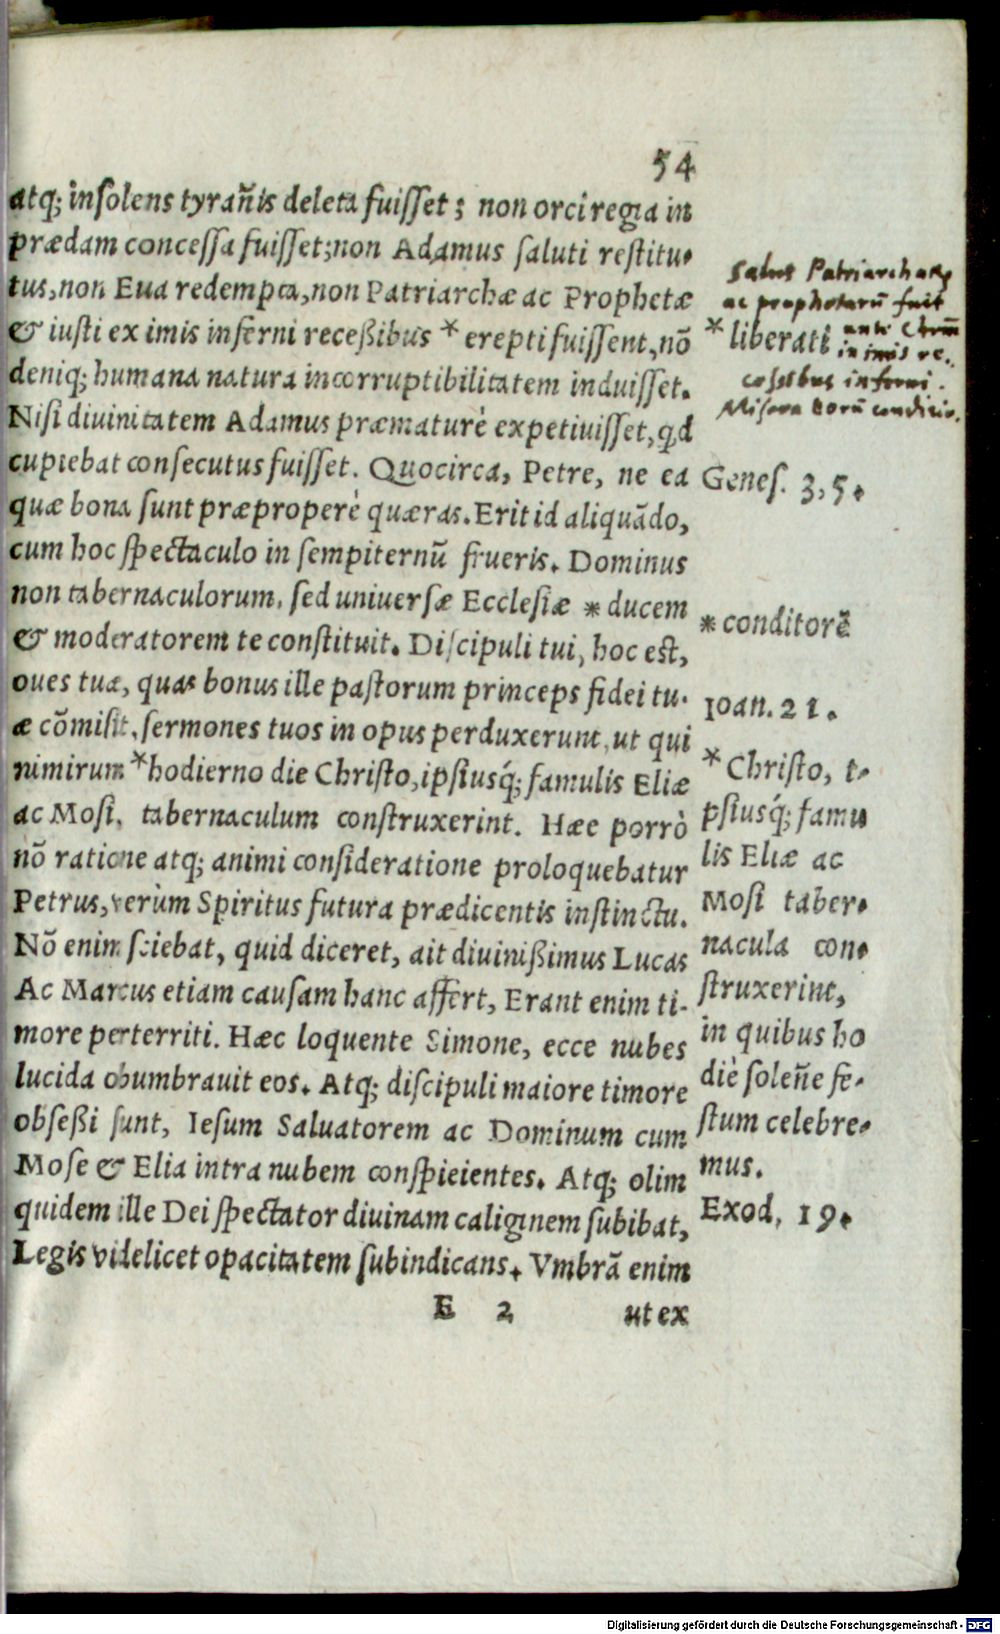 54
atq; inſolens tyrañis deleta fuiſſet; non orci regia in
prædam conceſſa fuiſſet; non Adamus ſaluti reſtitu-
tus, non Eua redempta, non Patriarchæ ac Prophetæ
& iuſti ex imis inferni receßibus * erepti fuiſſent, nō
deniq; humana natura incorruptibilitatem induiſſet.
Niſi diuinitatem Adamus præmaturè expetiuiſſet, qd
cupiebat conſecutus fuiſſet. Quocirca, Petre, ne ea
quæ bona ſunt præproperè quæras. Erit id aliquādo,
cum hoc ſpectaculo in ſempiternū frueris. Dominus
non tabernaculorum, ſed uniuerſæ Eccleſiæ * ducem
& moderatorem te conſtituit. Diſcipuli tui, hoc eſt,
oues tuæ, quas bonus ille paſtorum princeps fidei tu-
æ cōmiſit, ſermones tuos in opus perduxerunt, ut qui
nimirum * hodierno die Chriſto, ipſiusq́; famulis Eliæ
ac Moſi, tabernaculum conſtruxerint. Hæc porrò
nō ratione atq; animi conſideratione proloquebatur
Petrus, verùm Spiritus futura prædicentis inſtinctu.
Nō enim ſciebat, quid diceret, ait diuinißimus Lucas
Ac Marcus etiam cauſam hanc affert, Erant enim ti-
more perterriti. Hæc loquente Simone, ecce nubes
lucida obumbrauit eos. Atq; diſcipuli maiore timore
obſeßi ſunt, Ieſum Saluatorem ac Dominum cum
Moſe & Elia intra nubem conſpicientes. Atq; olim
quidem ille Dei ſpectator diuinam caliginem ſubibat,
Legis videlicet opacitatem ſubindicans. Vmbrā enim
E 2 ut ex
Patriarcharū
ac prophetarū fuit
* liberati
ante Chrm̄
in imis re-
ceſsibus inferni.
Miſera horū condicio.
Geneſ. 3, 5.
* conditorē
Ioan. 21.
* Chriſto, i-
pſiusq́; famu
lis Eliæ ac
Moſi taber-
nacula con-
ſtruxerint,
in quibus ho
diè ſoleñe fe-
ſtum celebre-
mus.
Exod. 19.
Digitalisierung gefördert durch die Deutsche Forschungsgemeinschaft - DFG